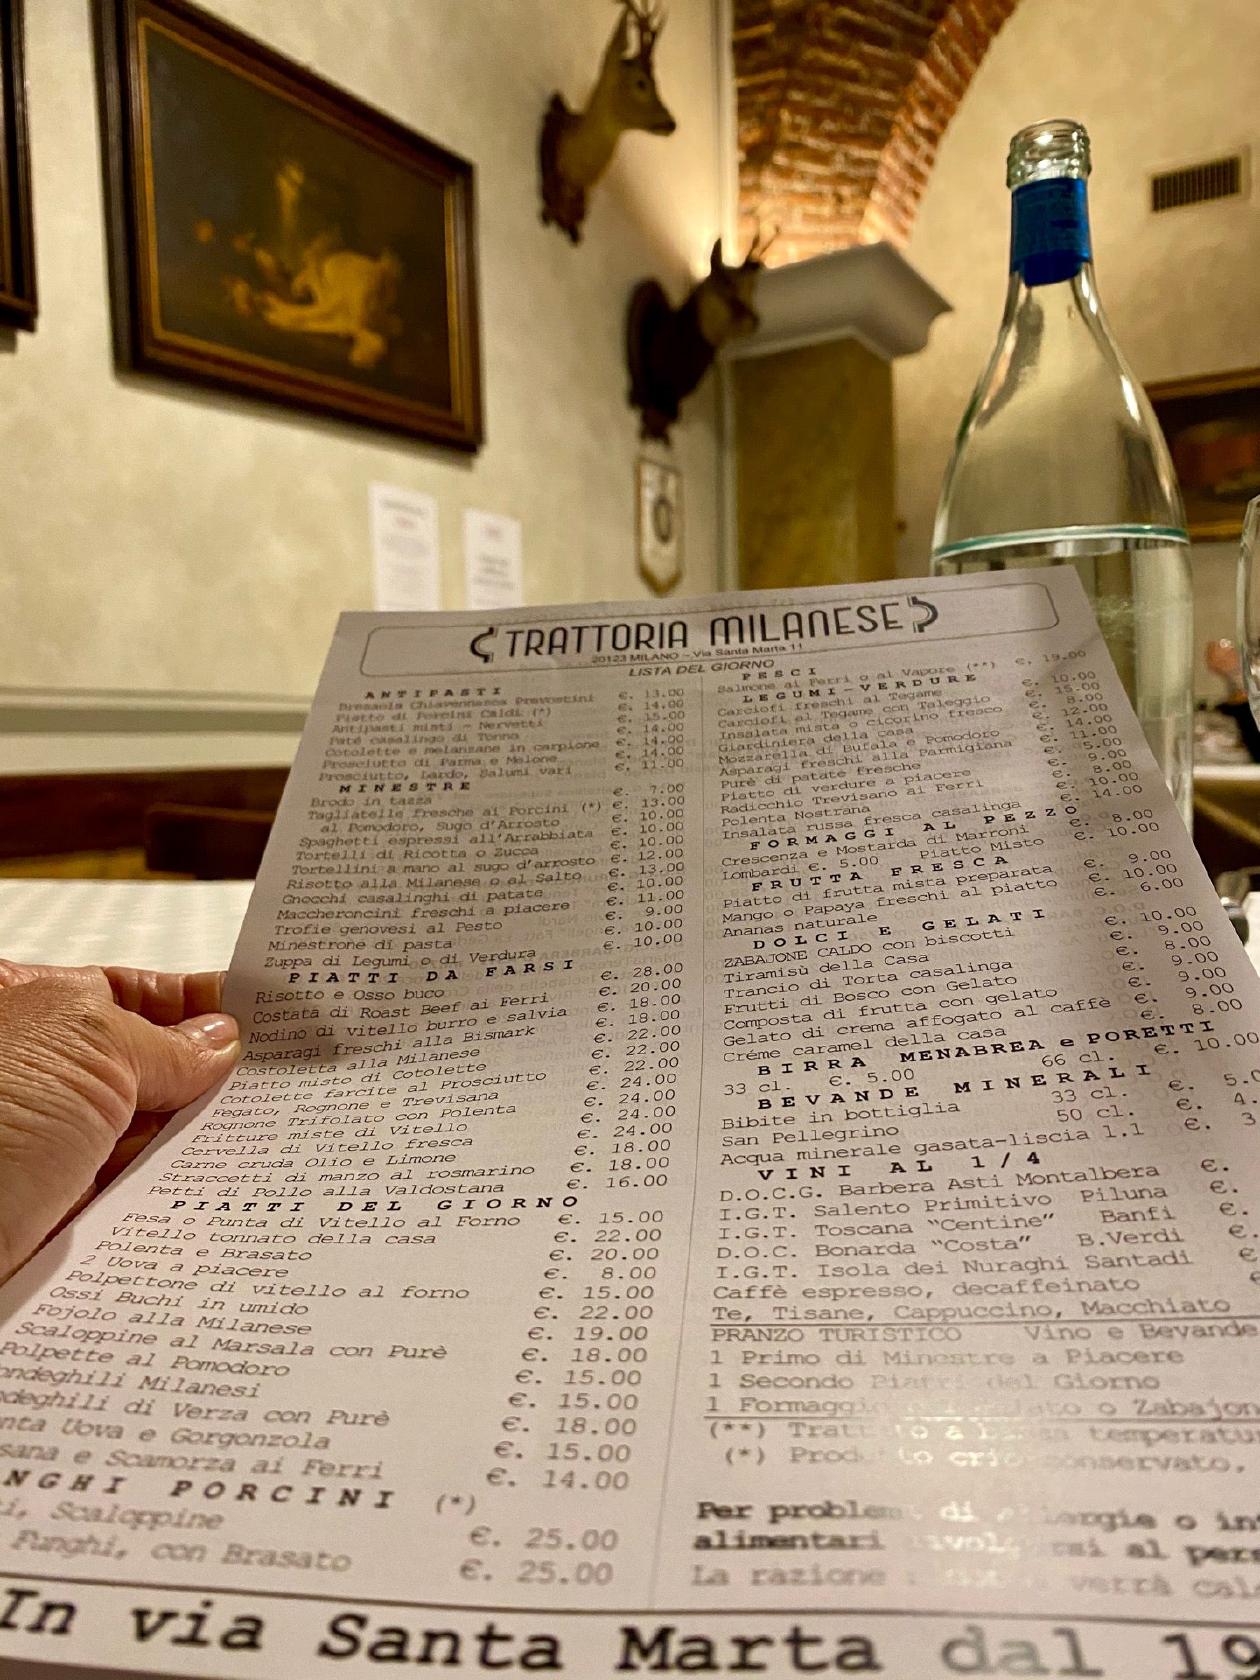 TRATTORIA MILANESE
20123 MILANO - Via Santa Marta 11
LISTA DEL GIORNO
ANTIPASTI
Bresaola Chiavennasca Prevostini €. 13.00
Piatto di Porcini Caldi (*) €. 14.00
Antipasti misti - Nervetti €. 15.00
Paté casalingo di Tonno €. 14.00
Cotolette e melanzane in carpione €. 14.00
Prosciutto di Parma e Melone €. 14.00
Prosciutto, Lardo, Salumi vari €. 11.00
MINESTRE
Brodo in tazza €. 7.00
Tagliatelle fresche ai Porcini (*) €. 13.00
al Pomodoro, Sugo d'Arrosto €. 10.00
Spaghetti espressi all'Arrabbiata €. 10.00
Tortelli di Ricotta o Zucca €. 10.00
Tortellini a mano al sugo d'arrosto €. 12.00
Risotto alla Milanese o al Salto €. 13.00
Gnocchi casalinghi di patate €. 10.00
Maccheroncini freschi a piacere €. 11.00
Trofie genovesi al Pesto €. 9.00
Minestrone di pasta €. 10.00
Zuppa di Legumi o di Verdura €. 10.00
PIATTI DA FARSI
Risotto e Osso buco €. 28.00
Costata di Roast Beef ai Ferri €. 20.00
Nodino di vitello burro e salvia €. 18.00
Asparagi freschi alla Bismark €. 18.00
Costoletta alla Milanese €. 22.00
Piatto misto di Cotolette €. 22.00
Cotolette farcite al Prosciutto €. 22.00
Fegato, Rognone e Trevisana €. 24.00
Rognone Trifolato con Polenta €. 24.00
Fritture miste di Vitello €. 24.00
Cervella di Vitello fresca €. 24.00
Carne cruda Olio e Limone €. 18.00
Straccetti di manzo al rosmarino €. 18.00
Petti di Pollo alla Valdostana €. 16.00
PIATTI DEL GIORNO
Fesa o Punta di Vitello al Forno €. 15.00
Vitello tonnato della casa €. 22.00
Polenta e Brasato €. 20.00
2 Uova a piacere €. 8.00
Polpettone di vitello al forno €. 15.00
Ossi Buchi in umido €. 22.00
Fojolo alla Milanese €. 19.00
Scaloppine al Marsala con Purè €. 18.00
Polpette al Pomodoro €. 15.00
ondeghili Milanesi €. 15.00
deghili di Verza con Purè €. 18.00
nta Uova e Gorgonzola €. 15.00
sana e Scamorza ai Ferri €. 14.00
NGHI PORCINI (*)
i, Scaloppine €. 25.00
Funghi, con Brasato €. 25.00
PESCI
Salmone ai Ferri o al Vapore (**) €. 19.00
LEGUMI-VERDURE
Carciofi freschi al Tegame €. 10.00
Carciofi al Tegame con Taleggio €. 15.00
Insalata mista o cicorino fresco €. 8.00
Giardiniera della casa €. 12.00
Mozzarella di Bufala e Pomodoro €. 14.00
Asparagi freschi alla Parmigiana €. 11.00
Purè di patate fresche €. 5.00
Piatto di verdure a piacere €. 9.00
Radicchio Trevisano ai Ferri €. 8.00
Polenta Nostrana €. 10.00
Insalata russa fresca casalinga €. 14.00
FORMAGGI AL PEZZO
Crescenza e Mostarda di Marroni €. 8.00
Lombardi €. 5.00 Piatto Misto €. 10.00
FRUTTA FRESCA
Piatto di frutta mista preparata €. 9.00
Mango o Papaya freschi al piatto €. 10.00
Ananas naturale €. 6.00
DOLCI E GELATI
ZABAJONE CALDO con biscotti €. 10.00
Tiramisù della Casa €. 9.00
Trancio di Torta casalinga €. 8.00
Frutti di Bosco con Gelato €. 9.00
Composta di frutta con gelato €. 9.00
Gelato di crema affogato al caffè €. 9.00
Créme caramel della casa €. 8.00
BIRRA MENABREA e PORETTI
33 cl. €. 5.00 66 cl. €. 10.00
BEVANDE MINERALI
Bibite in bottiglia 33 cl. €. 5.0
San Pellegrino 50 cl. €. 4.
Acqua minerale gasata-liscia 1.1 €. 3
VINI AL 1/4
D.O.C.G. Barbera Asti Montalbera €.
I.G.T. Salento Primitivo Piluna €.
I.G.T. Toscana “Centine” Banfi €.
D.O.C. Bonarda “Costa” B.Verdi €.
I.G.T. Isola dei Nuraghi Santadi €
Caffè espresso, decaffeinato
Te, Tisane, Cappuccino, Macchiato
PRANZO TURISTICO Vino e Bevande
1 Primo di Minestre a Piacere
1 Secondo Piatti del Giorno
1 Formaggi o Zabajon
(**) temperatur
(*) conservato.
Per problem di o in
alimentari al pers
La razione verrà cal
In via Santa Marta dal 19